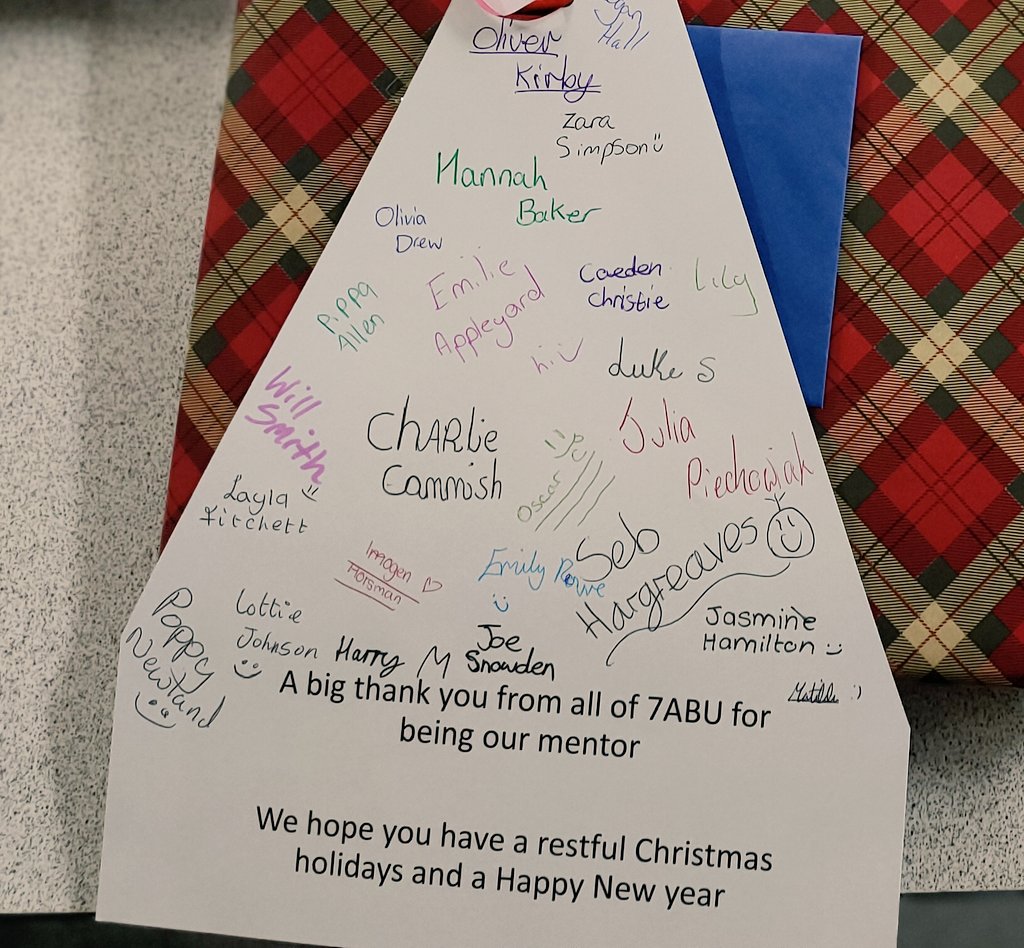 Hall
Oliver
Kirby
Zara
Simpson
Hannah
Baker
Olivia
Drew
Emilie
Appleyard
Caeden
Christie
Lily
Pippa
Allen
hi
Luke S
Will
Smith
Charlie
Cammish
Oscar
Julia
Piechowiak
Layla
Fitchett
Imogen
Horsman
Emily Rowe
Seb
Hargreaves
Poppy
Newland
Lottie
Johnson
Harry M
Joe
Snowden
Jasmine
Hamilton
Matilda :)
A big thank you from all of 7ABU for
being our mentor
We hope you have a restful Christmas
holidays and a Happy New year